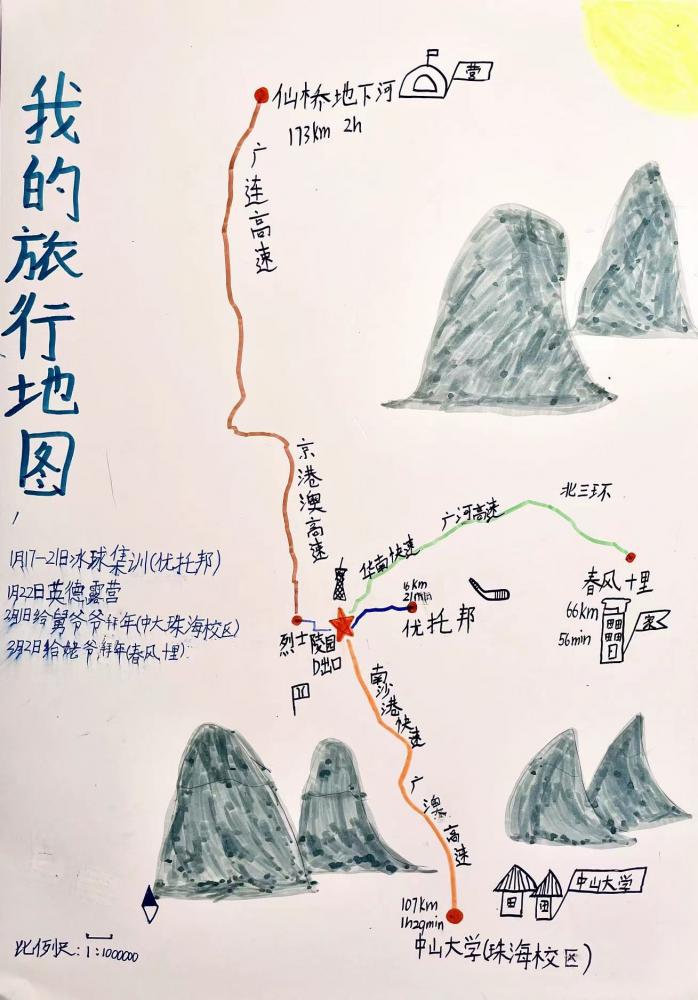 我的旅行地图
仙桥地下河
营
173km 2h
广连高速
京港澳高速
北三环
广河高速
华南快速
1月17-21日冰球集训(优托邦)
1月22日英德露营
2月1日给舅爷爷拜年(中大珠海校区)
2月2日给姥爷拜年(春风十里)
16km
21min
优托邦
春风十里
66km
56min
家
烈士陵园
D出口
南沙港快速
广澳高速
中山大学
107km
1h29min
中山大学(珠海校区)
比例尺:1:1000000